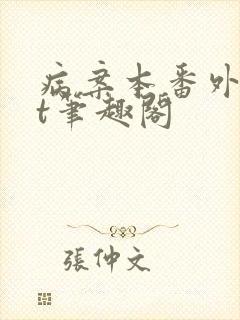 病案本番外
t笔趣阁
張仲文